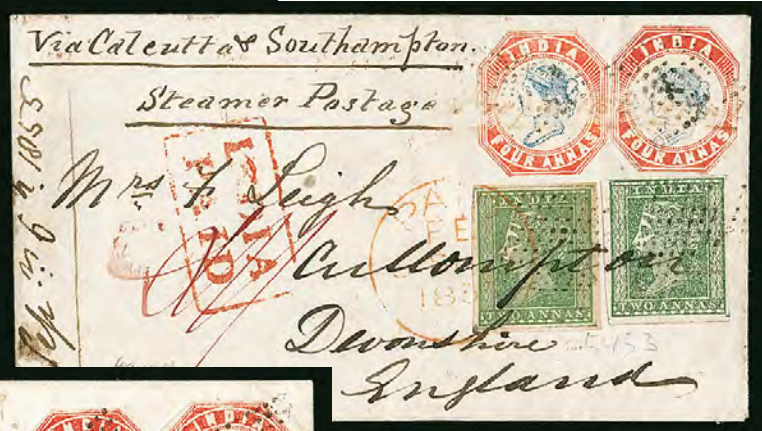 Via Calcutta & Southampton.
Steamer Postage
INDIA
FOUR ANNAS
INDIA
FOUR ANNAS
INDIA
PAID
Mrs F Leigh
Cullompton
Devonshire
England
INDIA
TWO ANNAS
INDIA
TWO ANNAS
5453
1855
INDIA
INDIA